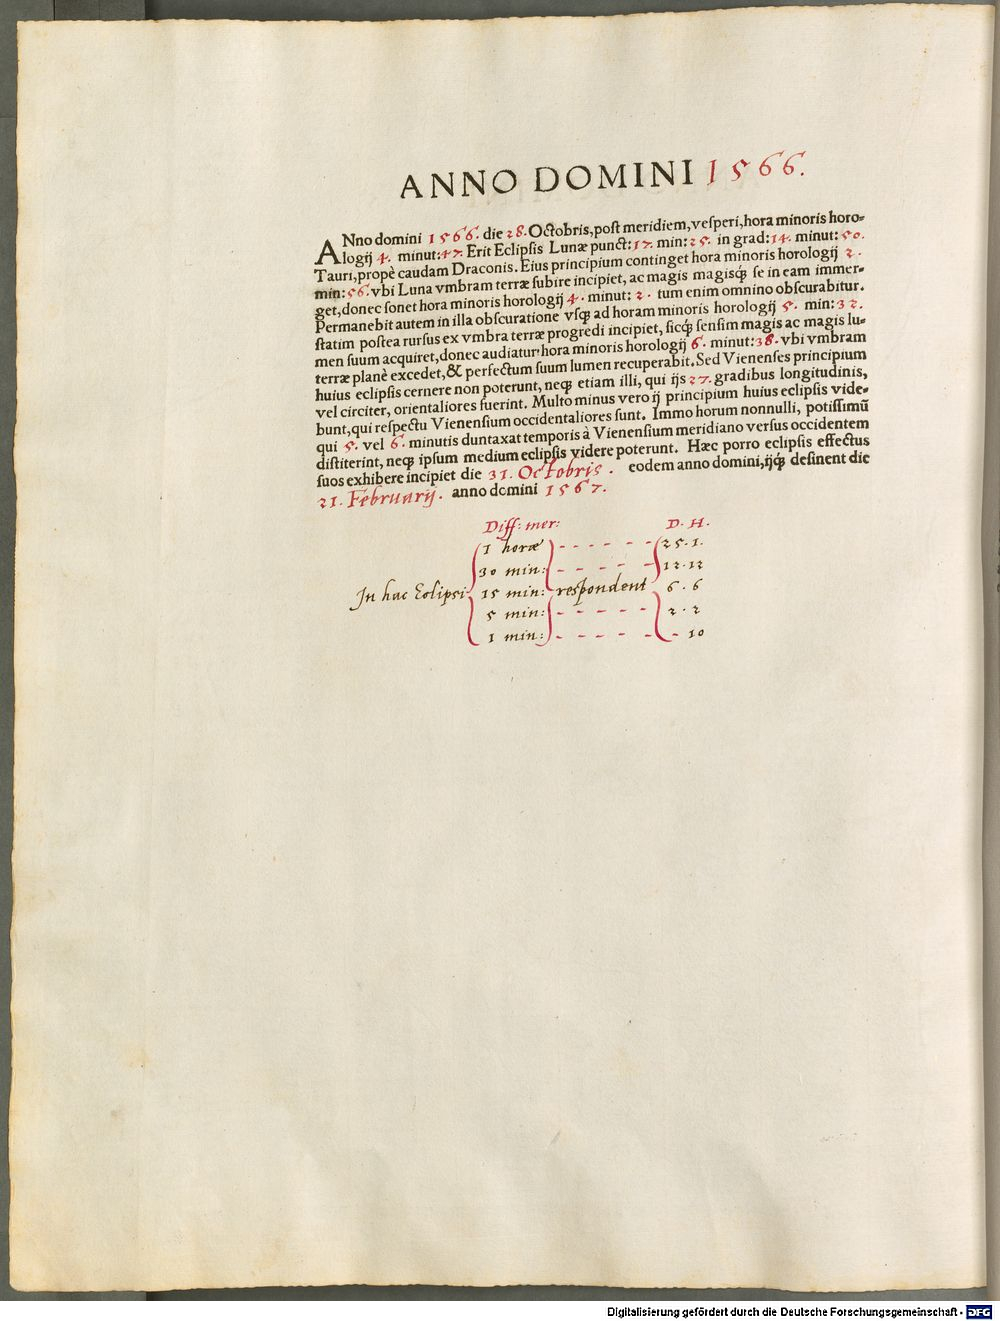 ANNO DOMINI 1566.
ANno domini 1566. die 28. Octobris, post meridiem, vesperi, hora minoris horo-
logij 4. minut: 47. Erit Eclipsis Lunæ punct: 17. min: 25. in grad: 14. minut: 50.
Tauri, propè caudam Draconis. Eius principium continget hora minoris horologij 2.
min: 56. vbi Luna vmbram terræ subire incipiet, ac magis magisq́ꝫ se in eam immer-
get, donec sonet hora minoris horologij 4. minut: 2. tum enim omnino obscurabitur.
Permanebit autem in illa obscuratione vsqꝫ ad horam minoris horologij 5. min: 32.
statim postea rursus ex vmbra terræ progredi incipiet, sicqꝫ sensim magis ac magis lu-
men suum acquiret, donec audiatur hora minoris horologij 6. minut: 38. vbi vmbram
terræ planè excedet, & perfectum suum lumen recuperabit. Sed Vienenses principium
huius eclipsis cernere non poterunt, neqꝫ etiam illi, qui ijs 27. gradibus longitudinis,
vel circiter, orientaliores fuerint. Multo minus vero ij principium huius eclipsis vide-
bunt, qui respectu Vienensium occidentaliores sunt. Immo horum nonnulli, potissimũ
qui 5. vel 6. minutis duntaxat temporis à Vienensium meridiano versus occidentem
distiterint, neqꝫ ipsum medium eclipsis videre poterunt. Hæc porro eclipsis effectus
suos exhibere incipiet die 31. Octobris. eodem anno domini, ijq́ꝫ desinent die
21. Februarij. anno domini 1567.
Diff: mer: D. H.
1 horæ - - - - - - 25. 1.
30 min: - - - - - 12. 12
In hac Eclipsi 15 min: respondent 6. 6
5 min: - - - - - 2. 2
1 min: - - - - - - 10
Digitalisierung gefördert durch die Deutsche Forschungsgemeinschaft - DFG